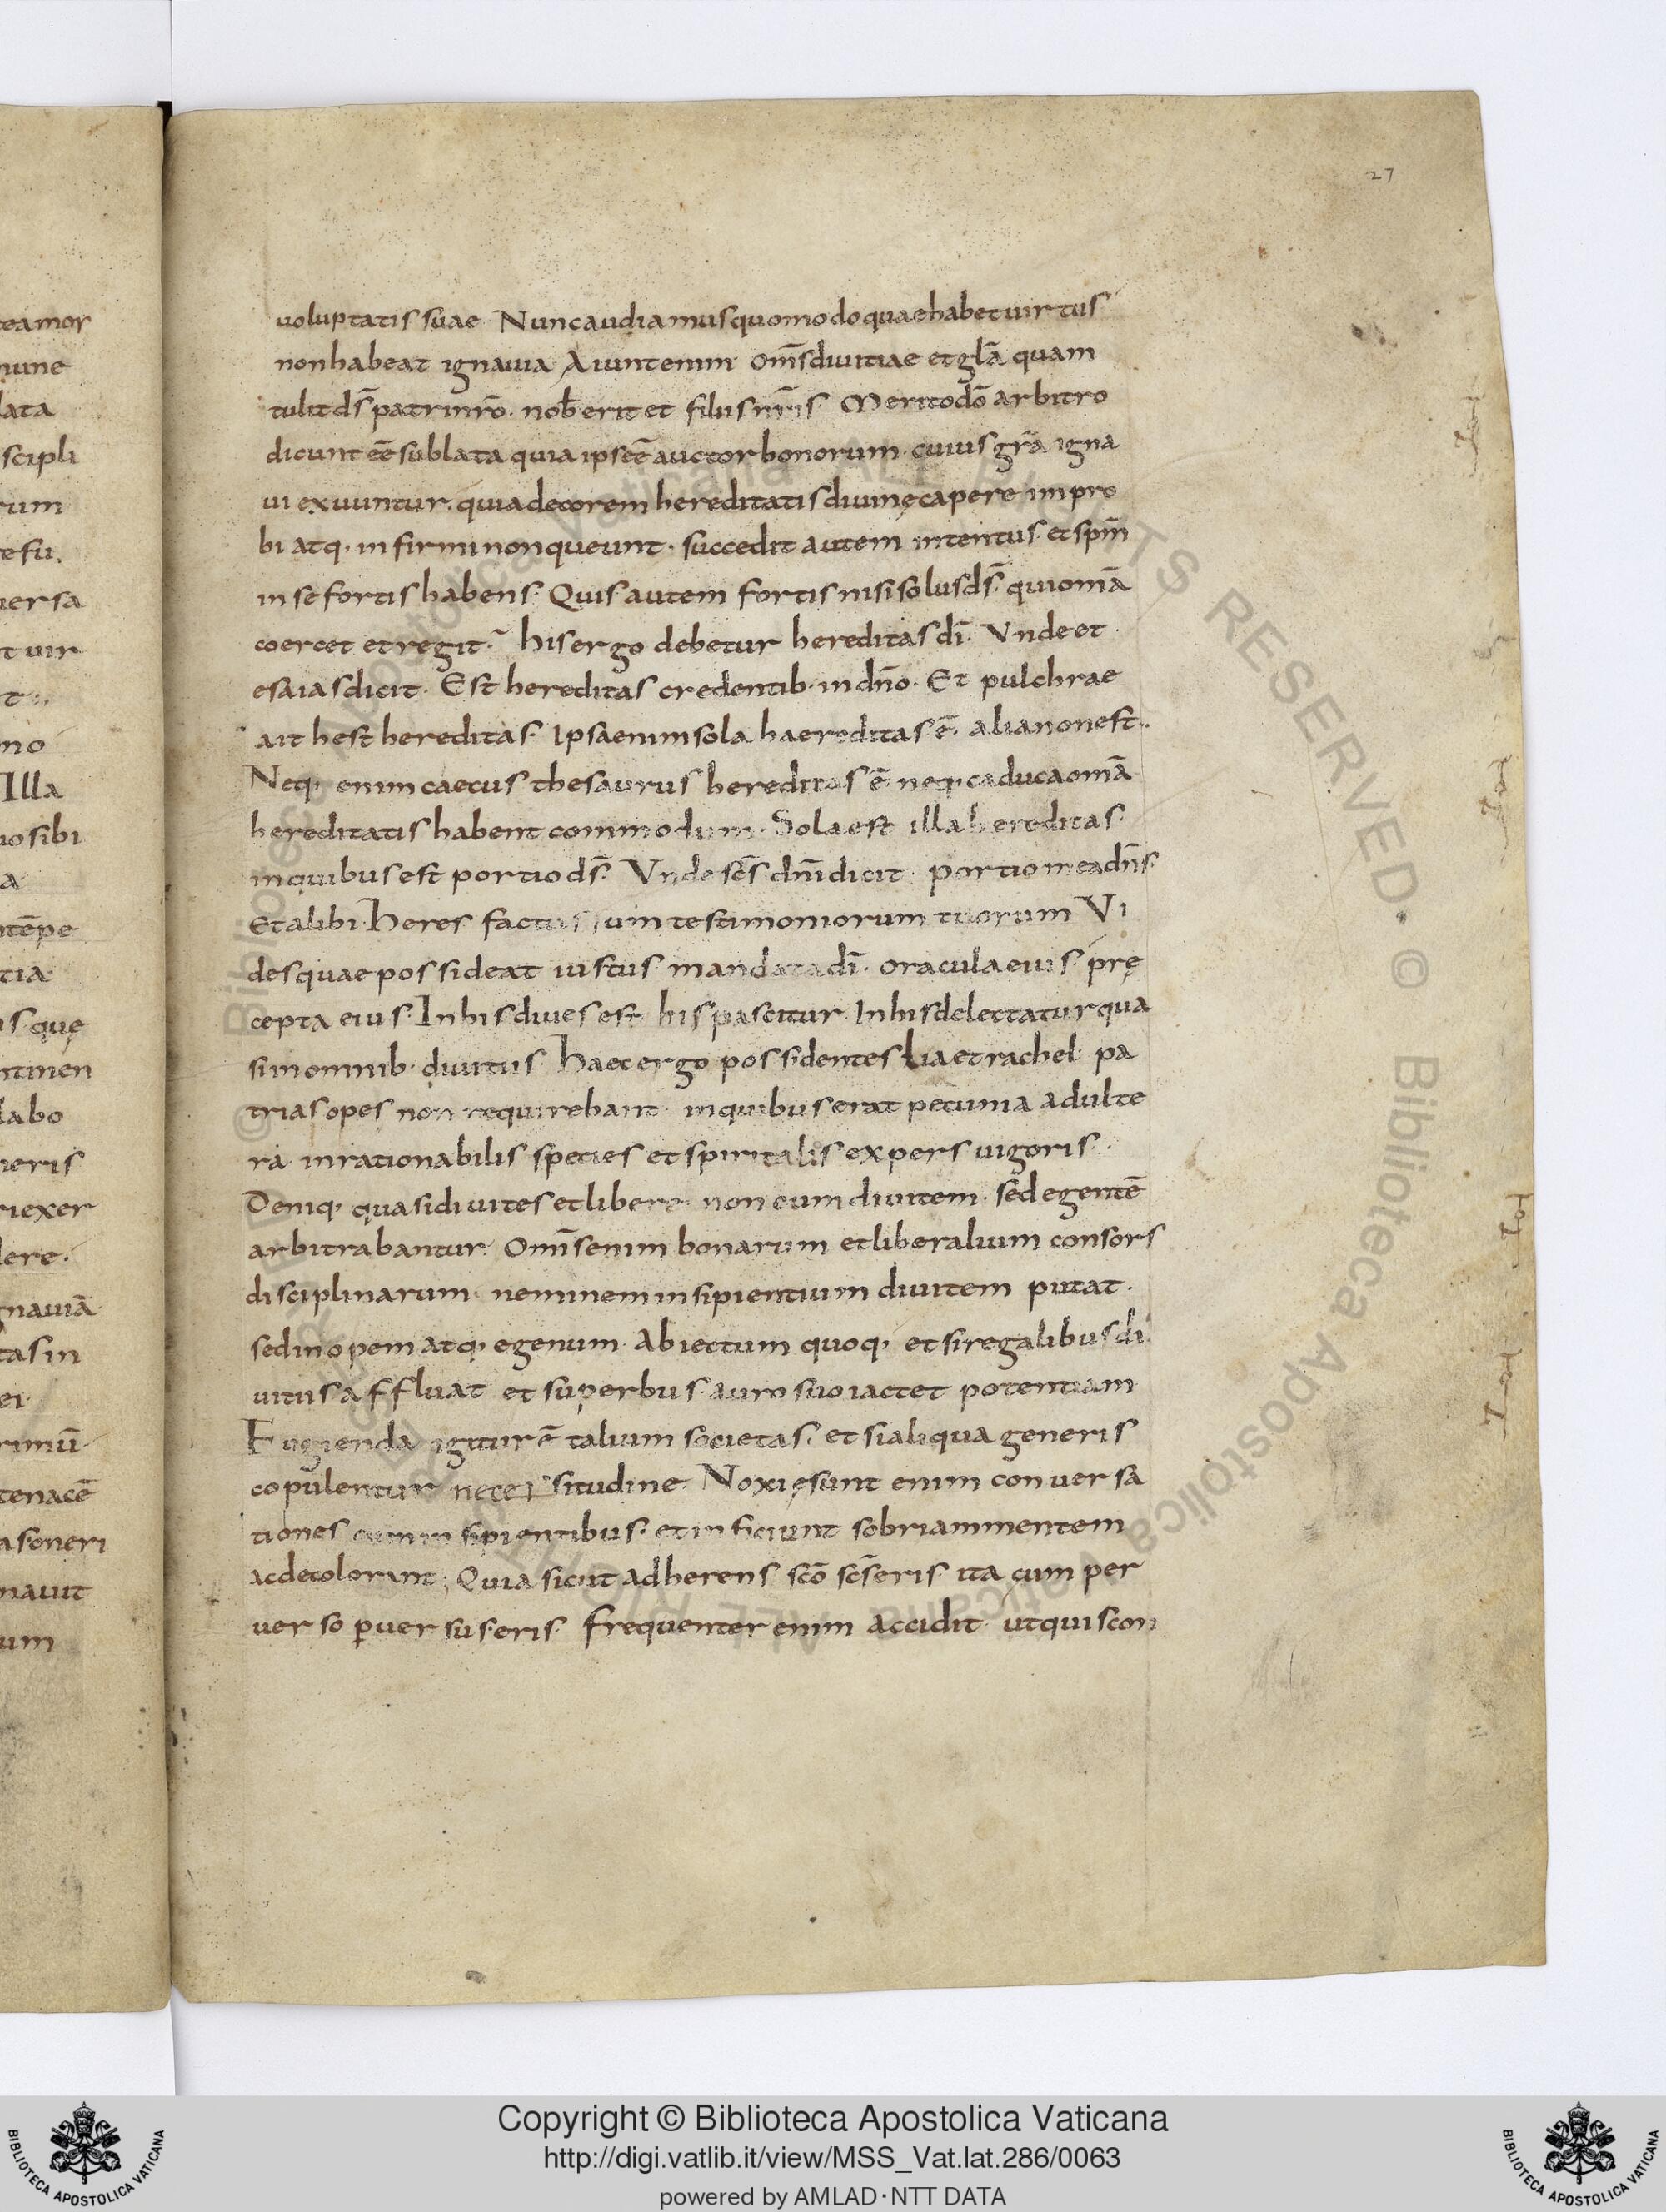 27
uoluptatis suae. Nunc audiamus quomodo quae habet uirtus
non habeat ignauia. Aiunt enim. Om̄s diuitiae et gl̄a quam
tulit ds̄ patri nrō. nob̄ erit et filiis nr̄is. Merito dō arbitro
dicunt ēe sublata quia ipse ē auctor bonorum. cuius gr̄a igna
ui exuuntur. quia decorem hereditatis diuinę capere impro
bi atq. infirmi non queunt. succedit autem intentus. et spm̄
in se fortis habens. Quis autem fortis nisi solus ds̄. qui omā
coercet et regit? his ergo debetur hereditas dī. Vnde et
esaias dicit. Est hereditas credentib. in dn̄o. Et pulchrae
ait hest hereditas. Ipsa enim sola haereditas ē. alia non est.
Neq. enim caecus thesaurus hereditas ē neq. caduca omā
hereditatis habent commodum. Sola est illa hereditas.
in quibus est portio ds̄. Vnde sc̄s dn̄i dicit. portio mea dn̄s.
Et alibi. Heres factus sum testimoniorum tuorum Vi
des quae possideat iustus mandata dī. oracula eius. prę
cepta eius. In his diues est his pascitur. In his delectatur qua
si in omnib. diuitiis. Haec ergo possidentes Lia et rachel pa
trias opes non requirebant. in quibus erat pecunia adulte
ra inrationabilis species et spiritalis expers uigoris.
Deniq. quasi diuites et liberę non eum diuitem. sed egentē
arbitrabantur. Omn̄s enim bonarum et liberalium consors
disciplinarum. neminem insipientium diuitem putat.
sed inopem atq. egenum. Abiectum quoq. et si regalibus di
uitiis affluat et superbus auro suo iactet potentiam
Fugienda igitur ē talium societas. et si aliqua generis
copulentur necessitudine. Noxię sunt enim conuersa
tiones cum insipientibus. et inficiunt sobriam mentem
ac decolorant; Quia sicut adherens scō sc̄s eris ita cum per
uerso p̱uersus eris. frequenter enim accidit. ut qui scon
Copyright © Biblioteca Apostolica Vaticana
http://digi.vatlib.it/view/MSS_Vat.lat.286/0063
powered by AMLAD·NTT DATA
BIBLIOTECA APOSTOLICA VATICANA
BIBLIOTECA APOSTOLICA VATICANA